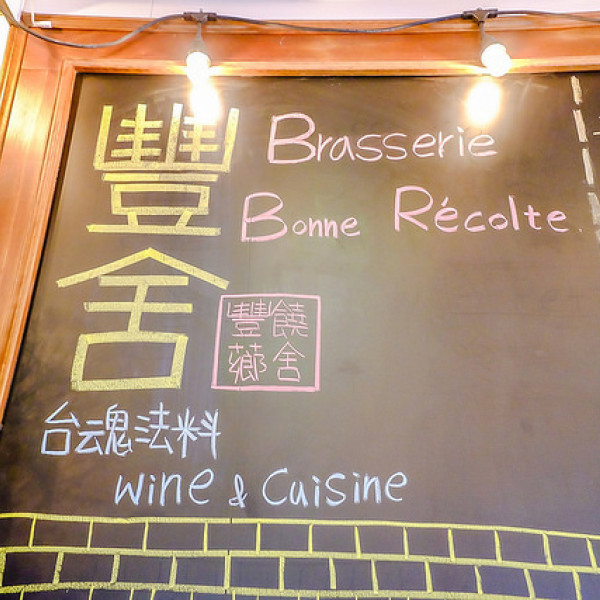 豐舍
Brasserie
Bonne Récolte
豐饒
薌舍
台魂法料
Wine & Cuisine